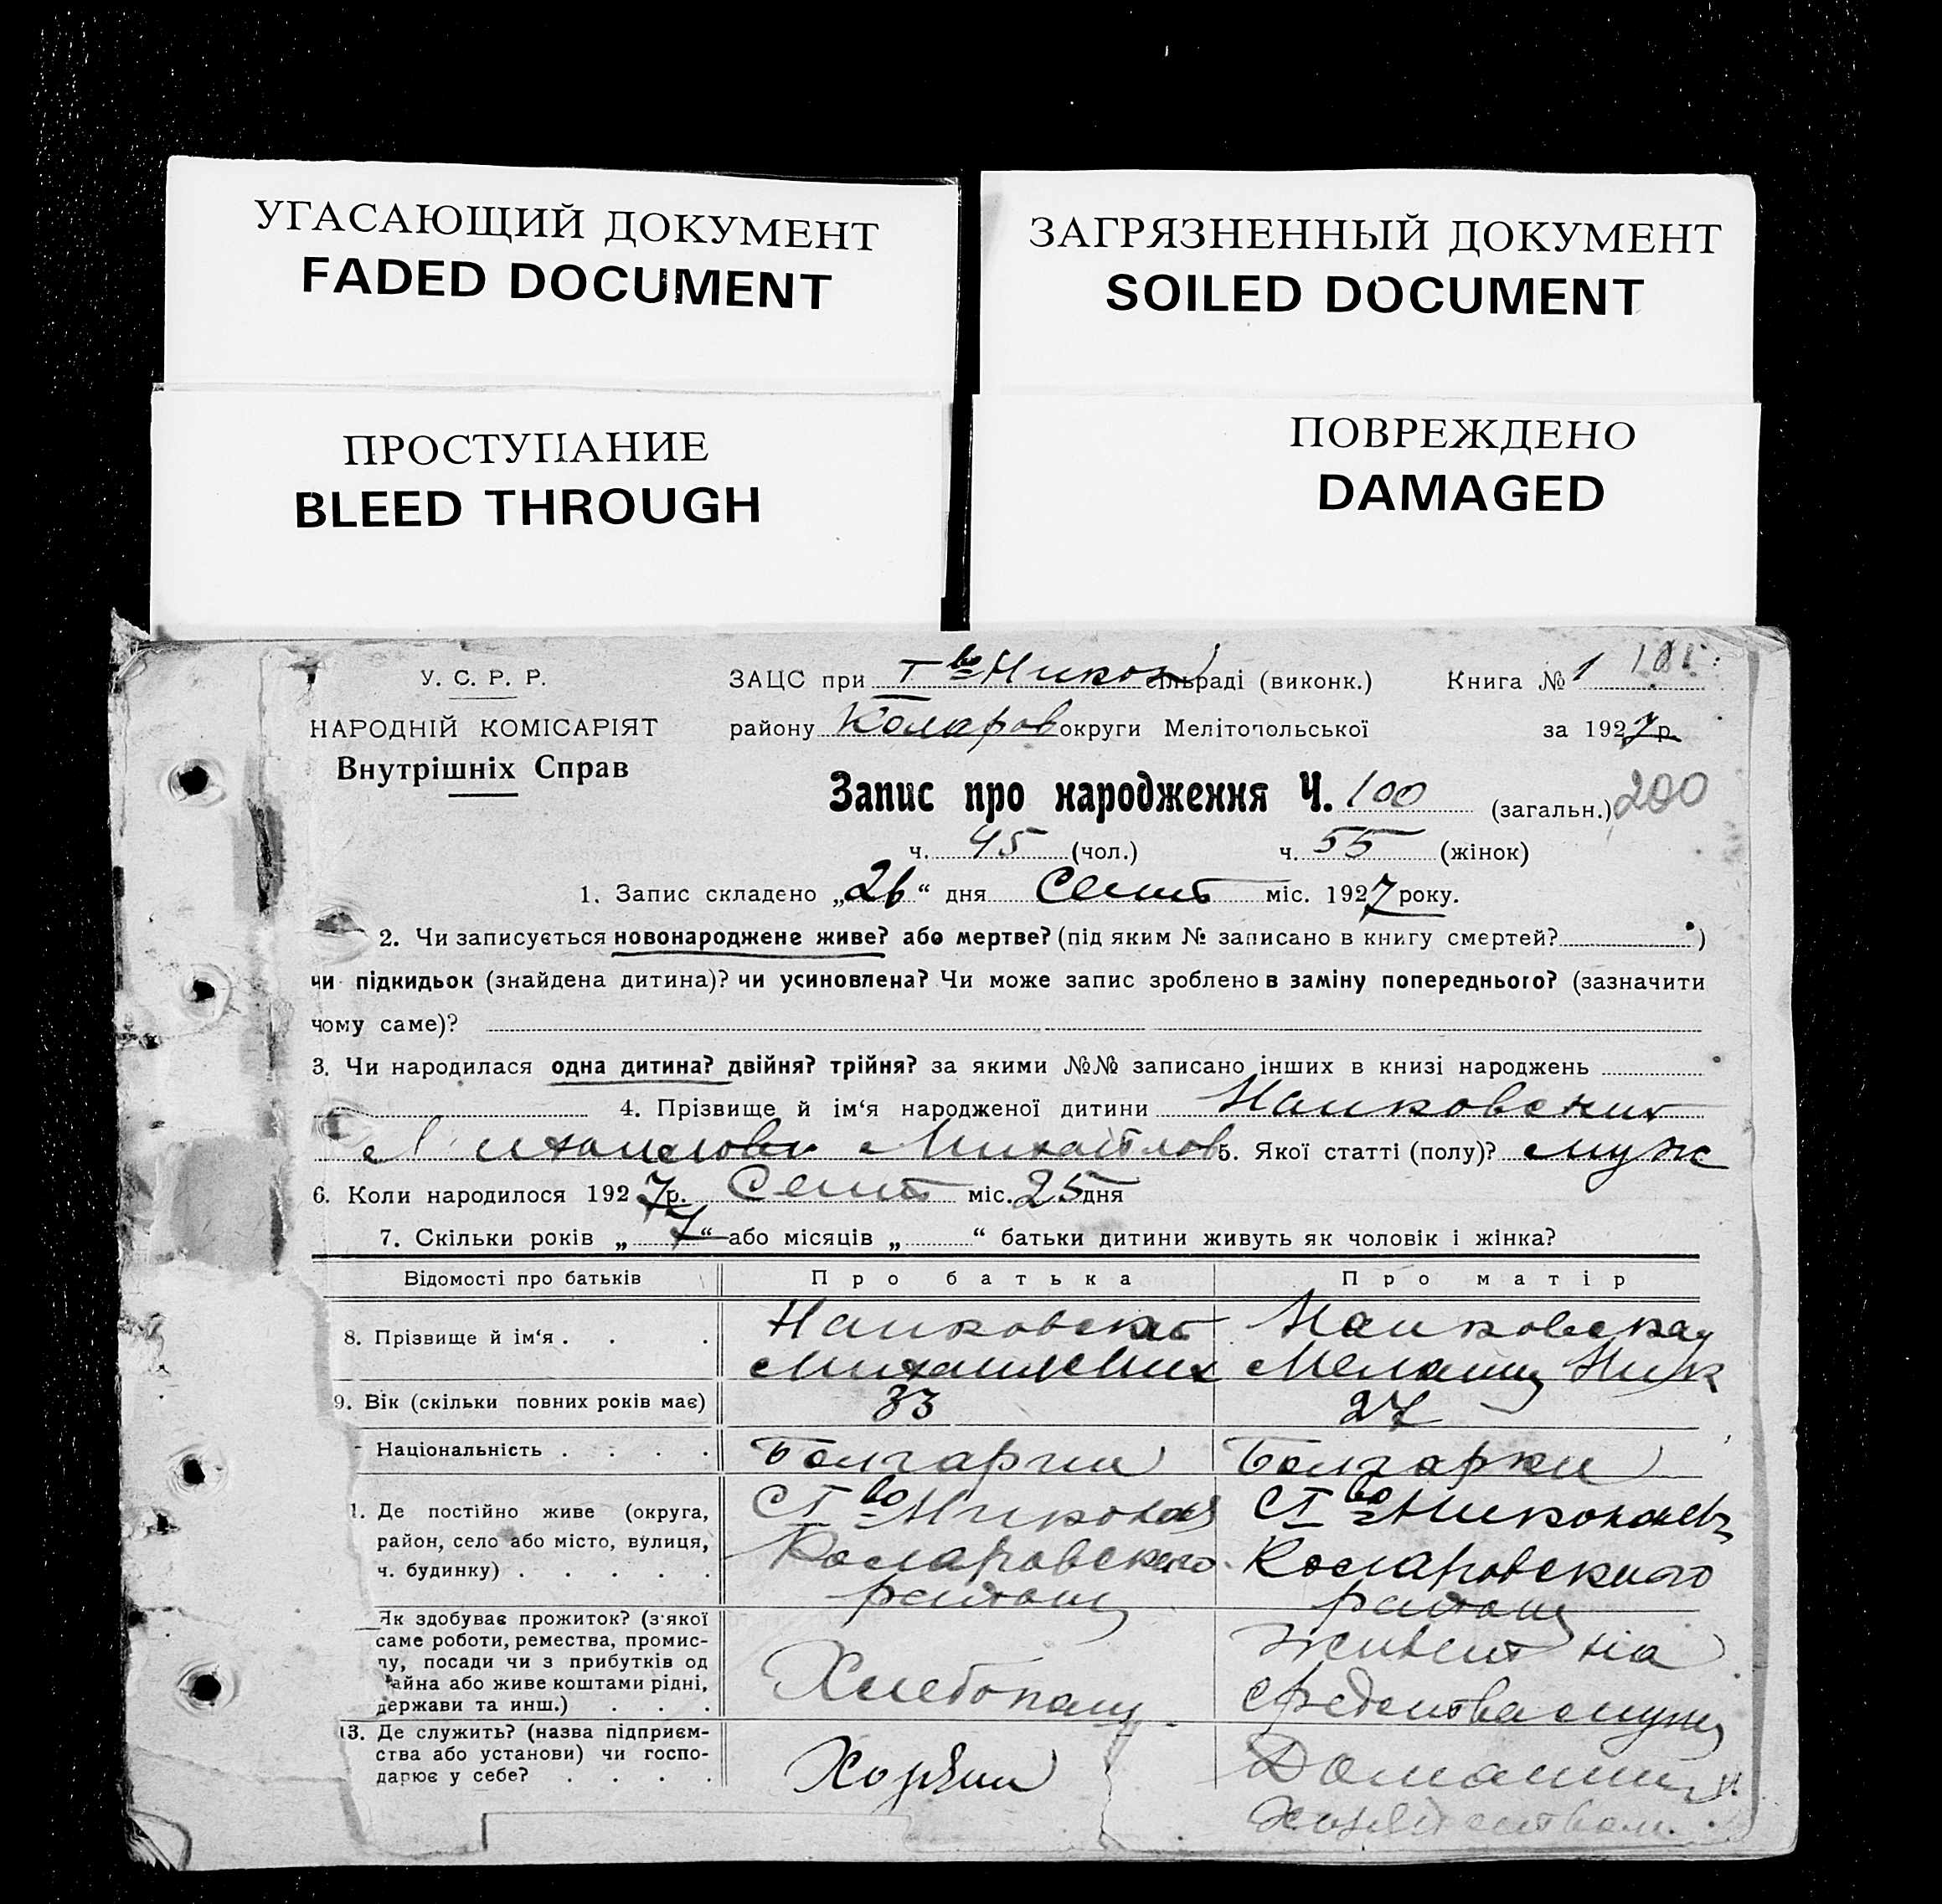 УГАСАЮЩИЙ ДОКУМЕНТ
FADED DOCUMENT
ЗАГРЯЗНЕННЫЙ ДОКУМЕНТ
SOILED DOCUMENT
ПРОСТУПАНИЕ
BLEED THROUGH
ПОВРЕЖДЕНО
DAMAGED
У. С. Р. Р.
НАРОДНІЙ КОМІСАРІЯТ
Внутрішніх Справ
ЗАЦС при сільраді (виконк.) Книга № 1
району Коларов округи Мелітопольської за 1927 р.
Запис про народження Ч. 100 (загальн.) 200
ч. 45 (чол.) ч. 55 (жінок)
1. Запис складено „26“ дня Сент міс. 1927 року.
2. Чи записується новонароджене живе? або мертве? (під яким № записано в книгу смертей? )
чи підкидьок (знайдена дитина)? чи усиновлена? Чи може запис зроблено в заміну попереднього? (зазначити
чому саме)?
3. Чи народилася одна дитина? двійня? трійня? за якими №№ записано інших в книзі народжень
4. Прізвище й ім‘я народженої дитини
5. Якої статті (полу)? муж
6. Коли народилося 1927 р. Сент міс. 25 дня
7. Скільки років „7“ або місяців „ “ батьки дитини живуть як чоловік і жінка?
Відомості про батьків Про батька Про матір
8. Прізвище й ім‘я
9. Вік (скільки повних років має) 33 27
Національність Болгарин Болгарки
1. Де постійно живе (округа,
район, село або місто, вулиця,
ч. будинку)
Коларовского
района
Коларовского
района
Як здобуває прожиток? (з'якої
саме роботи, ремества, промис-
лу, посади чи з прибутків од
майна або живе коштами рідні,
держави та инш.)
Хлебопаш
живет на
средства мужа
13. Де служить? (назва підприєм-
ства або установи) чи госпо-
дарює у себе?
Хозяин
Домашни
хозяйством.